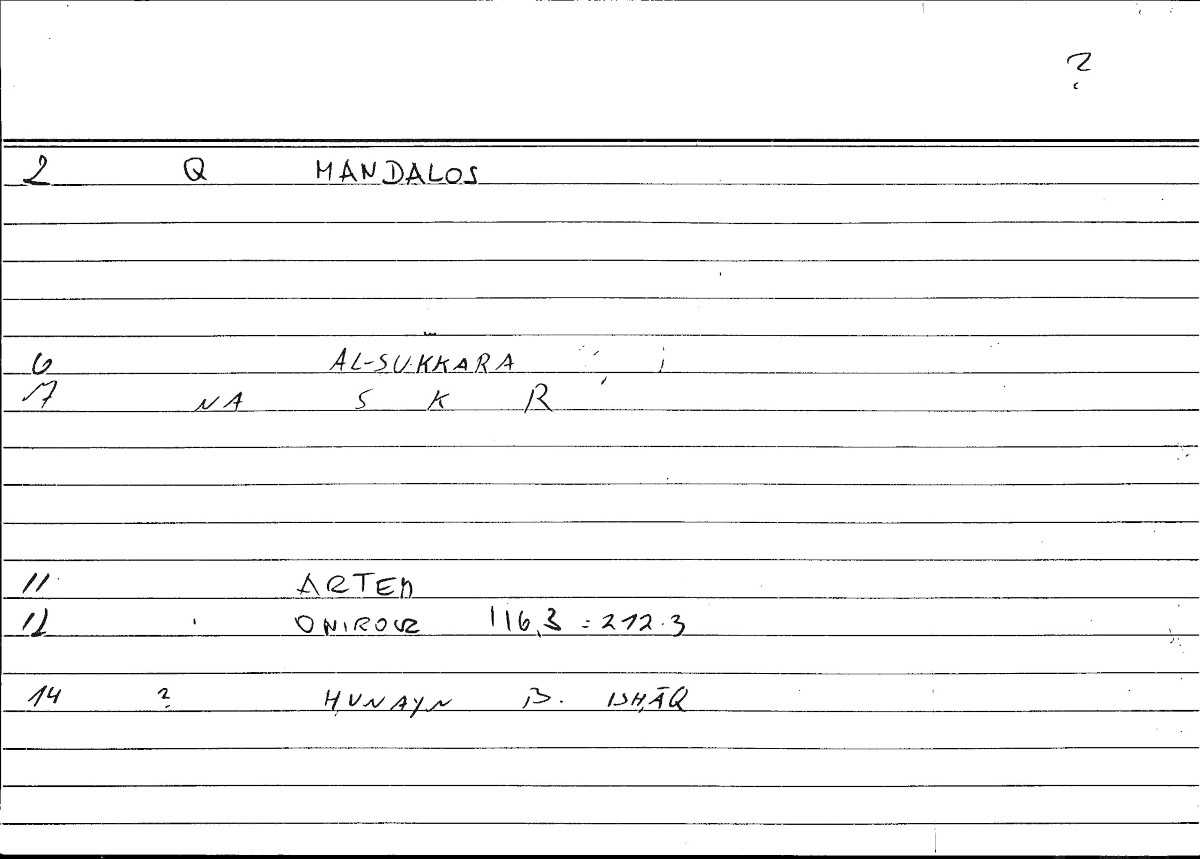 ?
2 Q MANDALOS
6 AL-SUKKARA
17 NA S K R
11 ARTEM
12 ONIROCR 116,3 = 212.3
14 ? ḤUNAYN B. ISḤĀQ